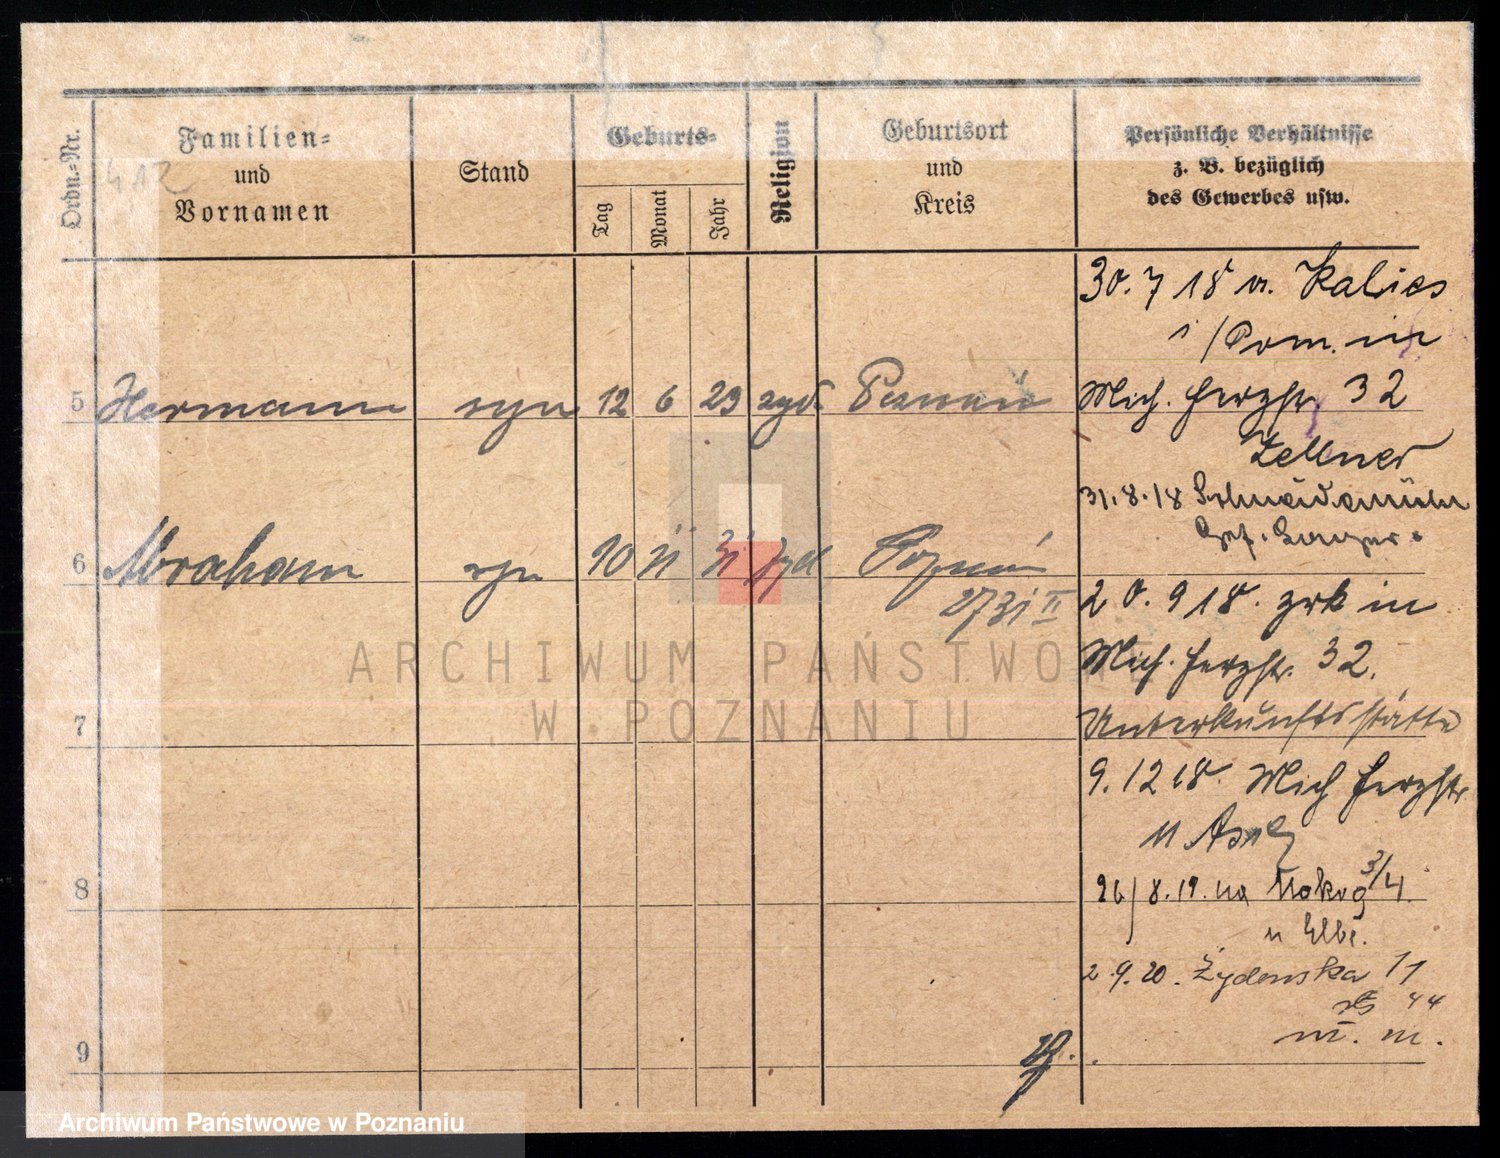 Ordn.=Nr.
Familien=
und
Vornamen
Stand
Geburts=
Tag
Monat
Jahr
Religion
Geburtsort
und
Kreis
Persönliche Verhältnisse
z. B. bezüglich
des Gewerbes usw.
412
30. 7 18 n. Kalies
i/Pom. in
5 Hermann syn 12 6 23 żyd. Poznań
Mich. Herzstr. 32
Zellner
31.8.18 Schneidemühl
Gef. Lager.
6 Abraham syn 10 11 31 żyd Poznań
2731 II
20. 9 18. zrk in
Mich. Herzstr. 32.
7 Unterkunftsstätte
9. 12 18. Mich Herzstr
8 26/8.19. na Mokra 3/4.
u Elbe.
2.9.20. Żydowska 11
44
9 m. m.
ARCHIWUM PAŃSTWO
W POZNANIU
Archiwum Państwowe w Poznaniu